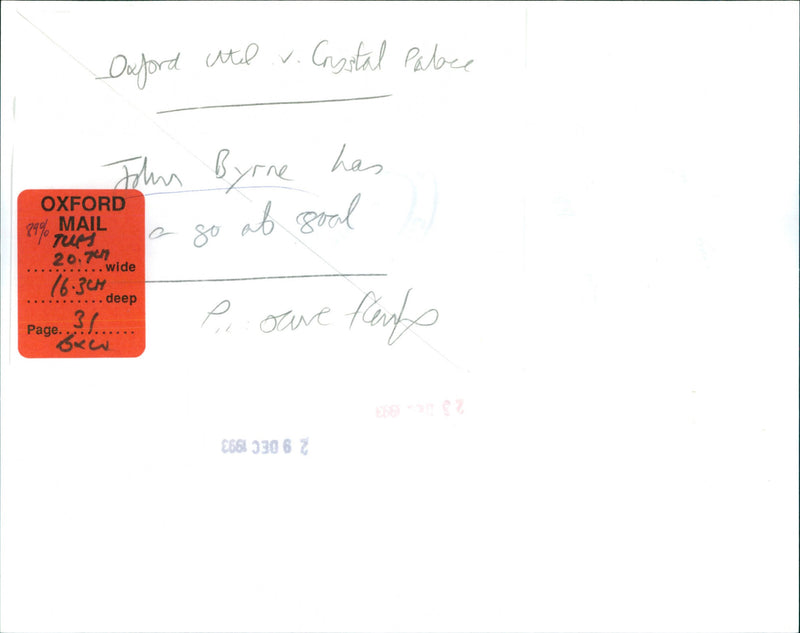 Oxford Utd v. Crystal Palace
John Byrne has
a go at goal
OXFORD
MAIL
89%
TUES
20.7CM wide
16.3CM deep
Page 31
B&W
29 DEC 1993
DEC 1993